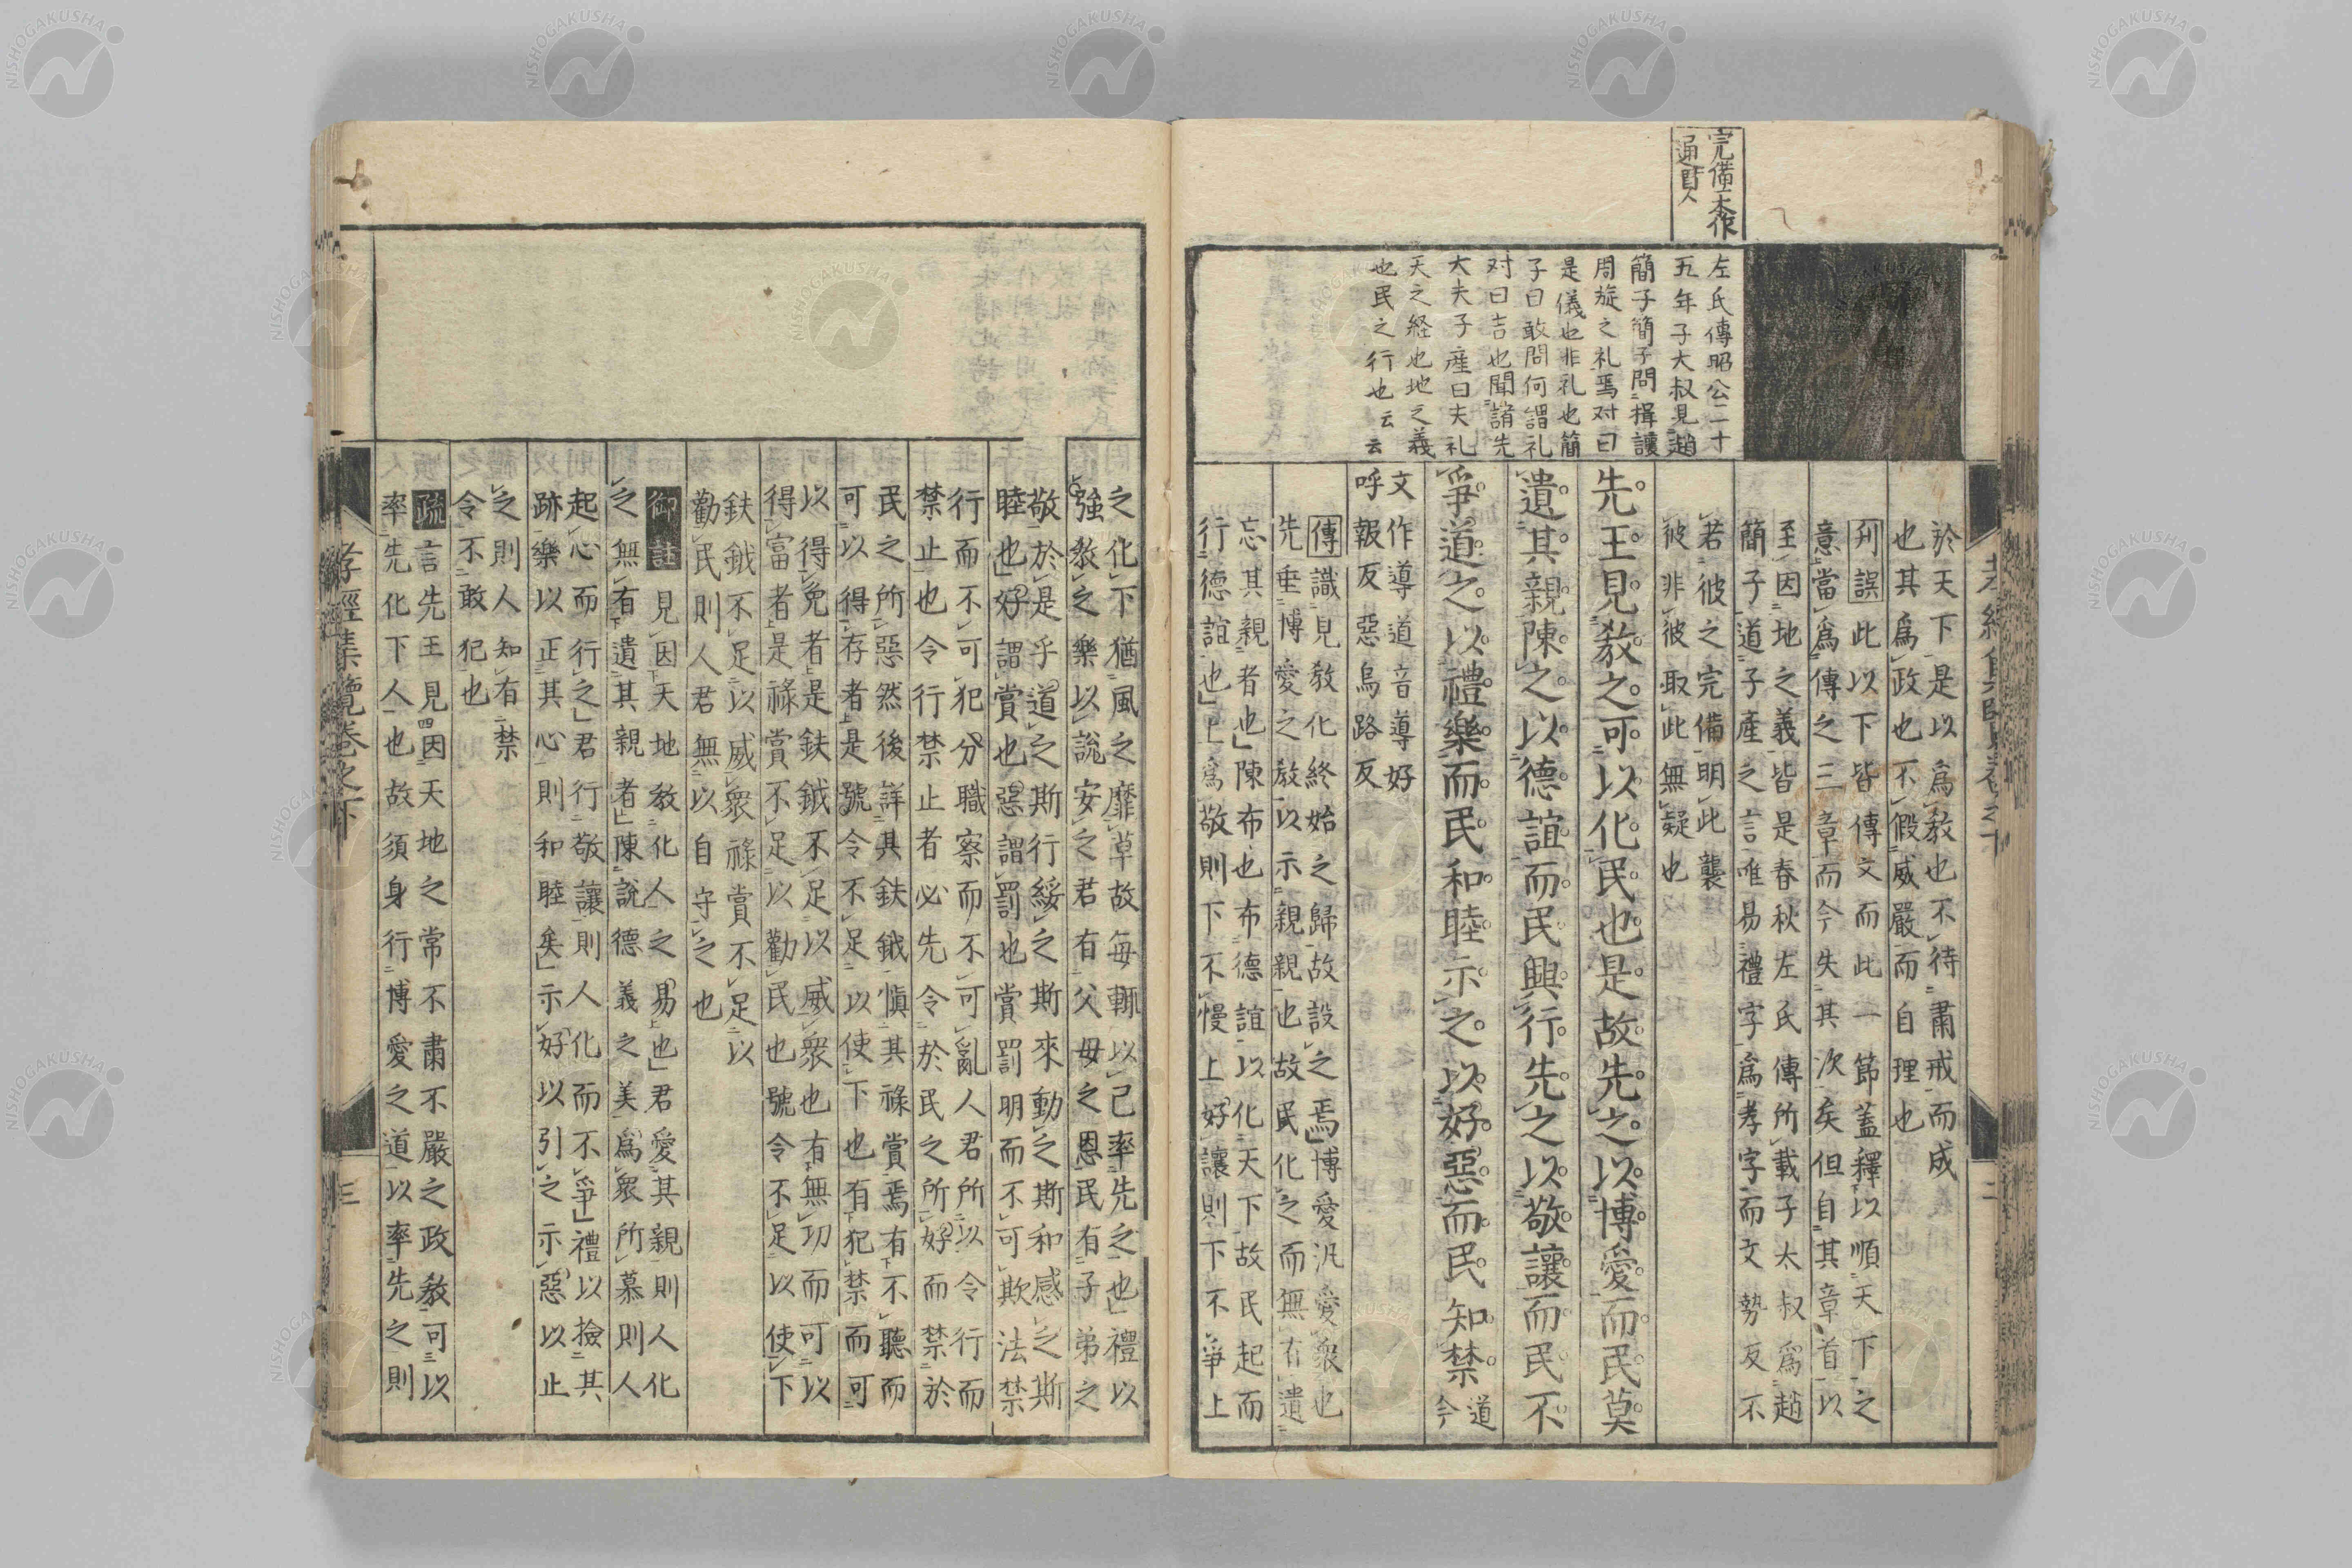 完備本作
通貫人
左氏傳昭公二十
五年子大叔見趙
簡子簡子問揖讓
周旋之礼焉对曰
是儀也非礼也簡
子曰敢問何謂礼
对曰吉也聞諸先
大夫子產曰夫礼
天之経也地之義
也民之行也云云
於天下是以爲教也不待肅戒而成
也其爲政也不假威嚴而自理也
刊誤此以下皆傳文而此一節蓋釋以順天下之
意當爲傳之三章而今失其次矣但自其章首以
至因地之義皆是春秋左氏傳所載子太叔爲趙
簡子道子產之言唯易禮字爲孝字而文勢反不
若彼之完備明此襲
彼非彼取此無疑也
先王見教之可以化民也是故先之以博愛而民莫
遺其親陳之以德誼而民興行先之以敬讓而民不
爭道之以禮樂而民和睦示之以好惡而民知禁道
今
文作導道音導好
呼報反惡烏路反
傳識見教化終始之歸故設之焉博愛汎愛衆也
先垂博愛之教以示親親也故民化之而無有遺
忘其親者也陳布也布德誼以化天下故民起而
行德誼也上爲敬則下不慢上好讓則下不爭上
孝經集覽卷之下
二
之化下猶風之靡草故每輒以己率先之也禮以
強教之樂以說安之君有父母之恩民有子弟之
敬於是乎道之斯行綏之斯來動之斯和感之斯
睦也好謂賞也惡謂罰也賞罰明而不可欺法禁
行而不可犯分職察而不可亂人君所以令行而
禁止也令行禁止者必先令於民之所好而禁於
民之所惡然後詳其鈇鉞愼其祿賞焉有不聽而
可以得存者是號令不足以使下也有犯禁而可
以得免者是鈇鉞不足以威衆也有無功而可以
得富者是祿賞不足以勸民也號令不足以使下
鈇鉞不足以威衆祿賞不足以
勸民則人君無以自守之也
御註見因天地教化人之易也君愛其親則人化
之無有遺其親者陳說德義之美爲衆所慕則人
起心而行之君行敬讓則人化而不爭禮以撿其
跡樂以正其心則和睦矣示好以引之示惡以止
之則人知有禁
令不敢犯也
疏言先王見因天地之常不肅不嚴之政教可以
率先化下人也故須身行博愛之道以率先之則
孝經集覽卷之下
三